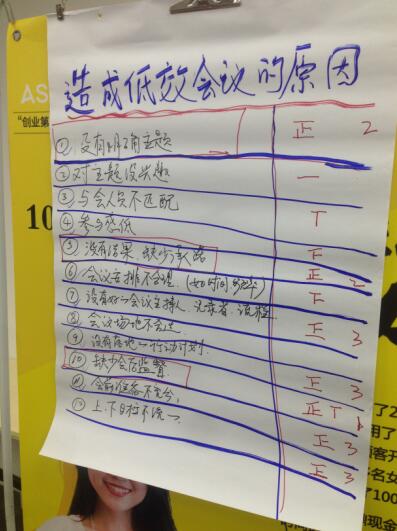 AS
"创业第
10
造成低效会议的原因
① 没有明确主题 正 2
② 对主题没兴趣 一
③ 与会人员不匹配
④ 参与感低 T
⑤ 没有结果.缺少承诺 下
⑥ 会议安排不合理.(如时间 正 2
⑦ 没有好的会议主持人.记录者.流程. 下
⑧ 会议场地不合适. 正 3
⑨ 没有落地一行动计划. 正
⑩ 缺少会后监督. 正 3
⑪ 会前准备不充分. 正 T 1
⑫ 上.下目标不统一. 正 3
正 3
了2
用了
顾客开
名女
了100
现金